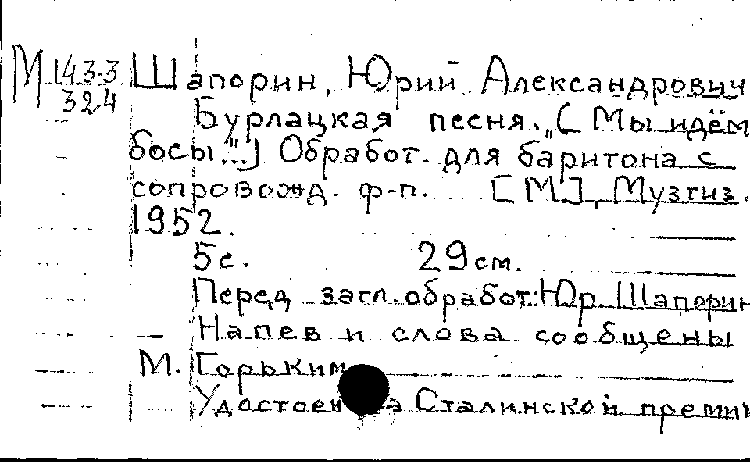 М 143-3 Шапорин, Юрий Александрович
324
Бурлацкая песня. „[ Мы идём
босы..."] Обработ. для баритона с
сопровожд. ф-п. [М.], Музгиз.
1952.
5 с. 29 см.
Перед загл. обработ: Юр. Шапорин
Напев и слова сообщены
М. Горьким
Сталинской премии